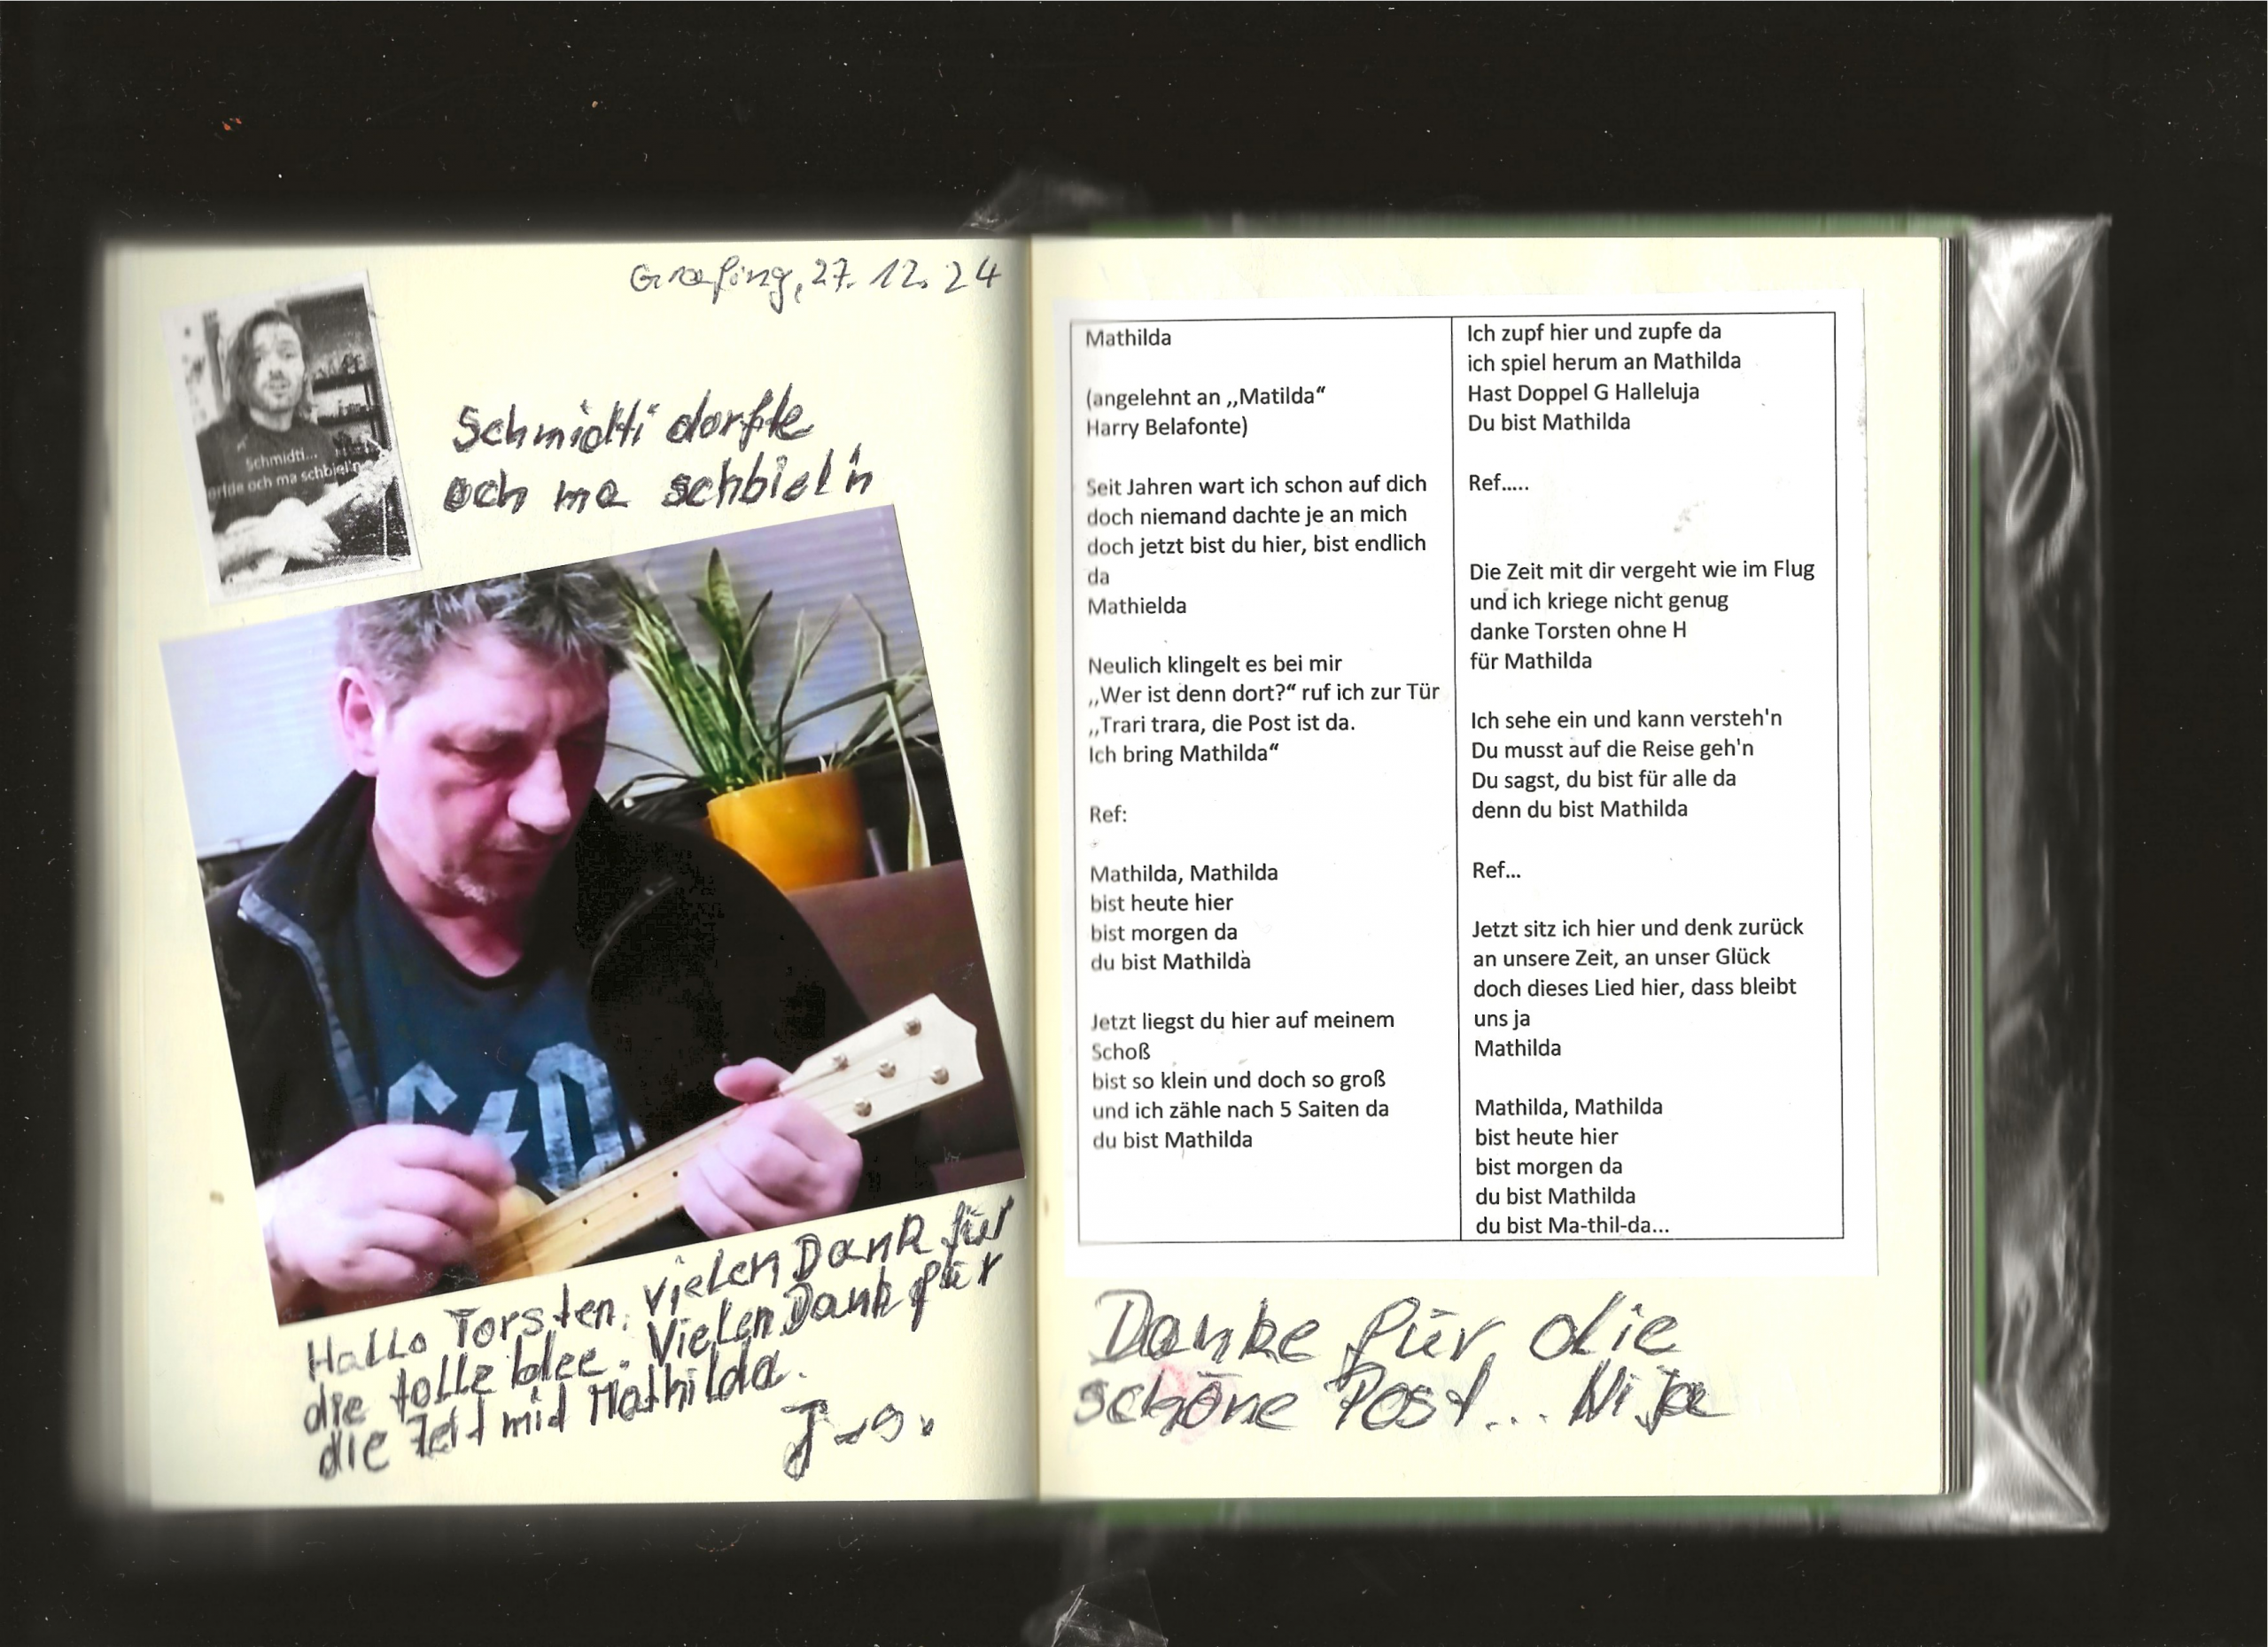 Grafing, 27. 12. 24
Schmidti...
orfde och ma schbiel'n
Schmidti dorfte
och ma schbiel'n
Hallo Torsten. vielen Dank für
die tolle Idee. Vielen Dank für
die Zeit mid Mathilda.
Mathilda
(angelehnt an „Matilda“
Harry Belafonte)
Seit Jahren wart ich schon auf dich
doch niemand dachte je an mich
doch jetzt bist du hier, bist endlich
da
Mathielda
Neulich klingelt es bei mir
„Wer ist denn dort?“ ruf ich zur Tür
„Trari trara, die Post ist da.
Ich bring Mathilda“
Ref:
Mathilda, Mathilda
bist heute hier
bist morgen da
du bist Mathilda
Jetzt liegst du hier auf meinem
Schoß
bist so klein und doch so groß
und ich zähle nach 5 Saiten da
du bist Mathilda
Ich zupf hier und zupfe da
ich spiel herum an Mathilda
Hast Doppel G Halleluja
Du bist Mathilda
Ref.....
Die Zeit mit dir vergeht wie im Flug
und ich kriege nicht genug
danke Torsten ohne H
für Mathilda
Ich sehe ein und kann versteh'n
Du musst auf die Reise geh'n
Du sagst, du bist für alle da
denn du bist Mathilda
Ref...
Jetzt sitz ich hier und denk zurück
an unsere Zeit, an unser Glück
doch dieses Lied hier, dass bleibt
uns ja
Mathilda
Mathilda, Mathilda
bist heute hier
bist morgen da
du bist Mathilda
du bist Ma-thil-da...
Danke für die
schöne Post...